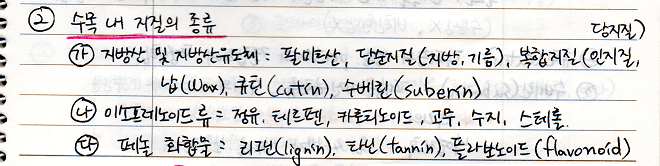 ② 수목 내 지질의 종류
당지질)
㉮ 지방산 및 지방산유도체 : 팔미트산, 단순지질(지방, 기름), 복합지질(인지질,
납(wax), 큐틴(cutin), 수베린(suberin)
㉯ 이소프레노이드류 = 정유, 테르펜, 카로티노이드, 고무, 수지, 스테롤.
㉰ 페놀 화합물 = 리그닌(lignin), 타닌(tannin), 플라보노이드(flavonoid)